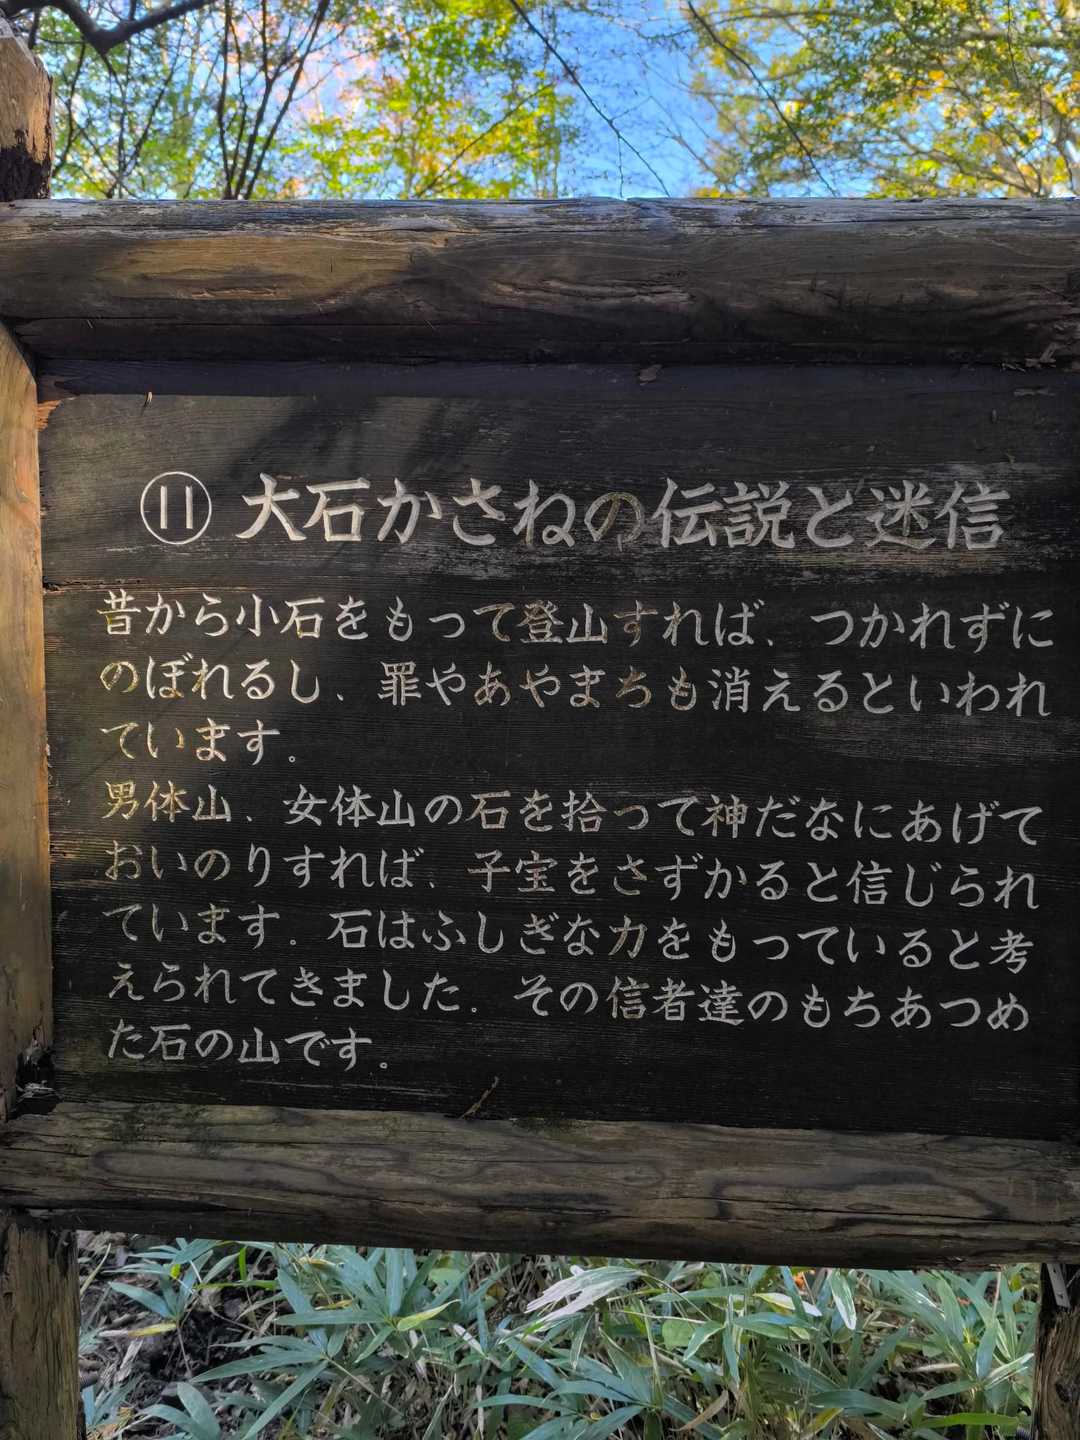 ⑪ 大石かさねの伝説と迷信
昔から小石をもって登山すれば、つかれずに
のぼれるし、罪やあやまちも消えるといわれ
ています。
男体山、女体山の石を拾って神だなにあげて
おいのりすれば、子宝をさずかると信じられ
ています。石はふしぎな力をもっていると考
えられてきました。その信者達のもちあつめ
た石の山です。